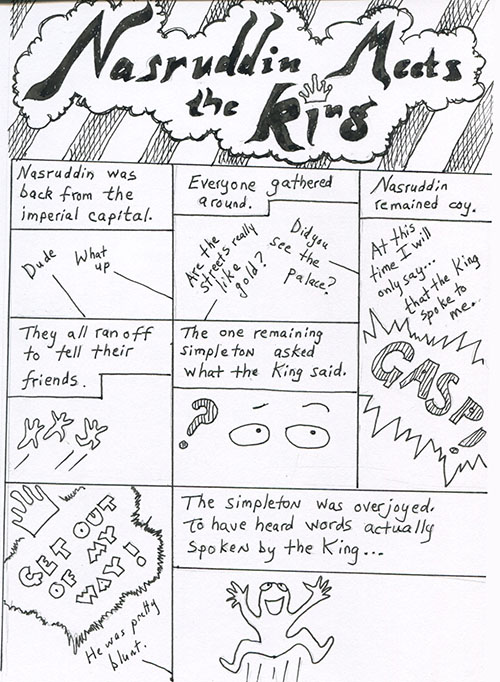 Nasruddin Meets
the King
Nasruddin was
back from the
imperial capital.
Dude
What
up
Everyone gathered
around.
Are the
streets really
like
gold?
Did you
see the
Palace?
Nasruddin
remained coy.
At this
time I will
only say...
that the King
spoke to
me.
GASP!
They all ran off
to tell their
friends.
The one remaining
simpleton asked
what the King said.
?
GET OUT
OF MY
WAY!
He was pretty
blunt.
The simpleton was overjoyed.
To have heard words actually
spoken by the King...